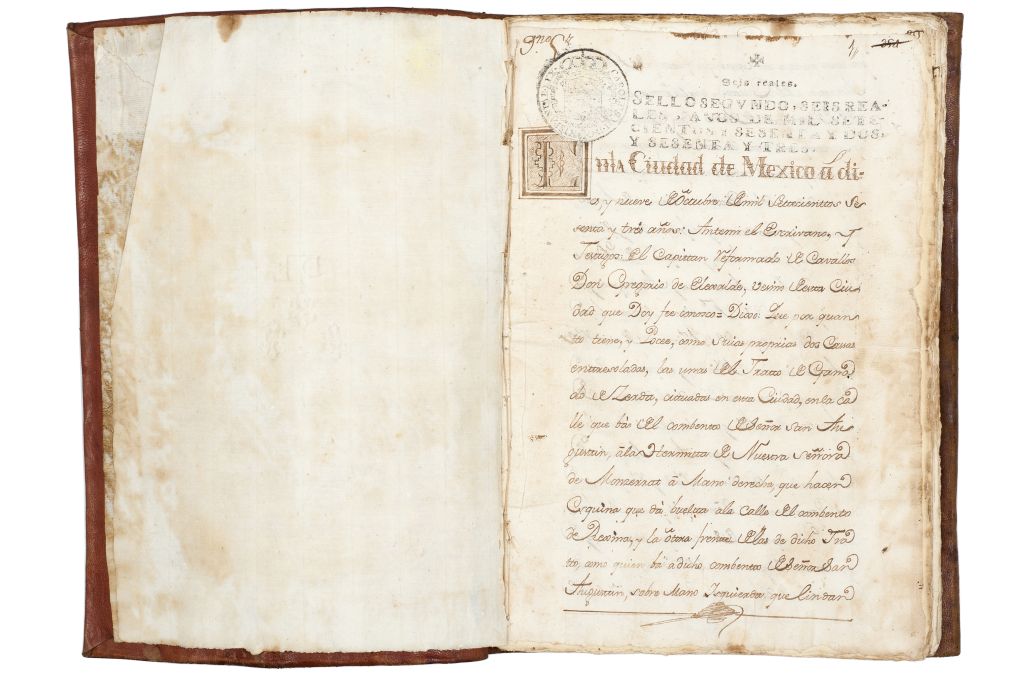 Seis reales.
SELLO SEGVNDO, SEIS REA-
LES, AÑOS DE MIL SETE-
CIENTOS Y SESENTA Y DOS,
Y SESENTA Y TRES.
EnlA Ciudad de Mexico â di-
es y nueve de Octubre de mil Setecienttos se
senta y tres años: Antemi el Escrivano, y
Testigos: el Capittan reformado de Cavalls
Don Gregorio de Elexalde, vecino de esta Ciu-
dad que Doy fee conosco = Dixo: Que por quan
to tiene, y Posee, como suias proprias dos Cassas
entresoladas, las unas de el Tratto de Ganâ
do de Zerda, cituadas en esta Ciudad, en la câ
lle que bâ de el combento de Señor san Au
gustin, âla Hermita de Nuestra Señora
de Monzerrat â Mano derecha, que hacen
Esquina que dâ buelta âla Calle de el combento
de Regina, y la ôtra frente de las de dicho Trâ
to, como quien bâ a dicho combento de Señor San
Augustin, sobre Mano Izquierda, que lindan